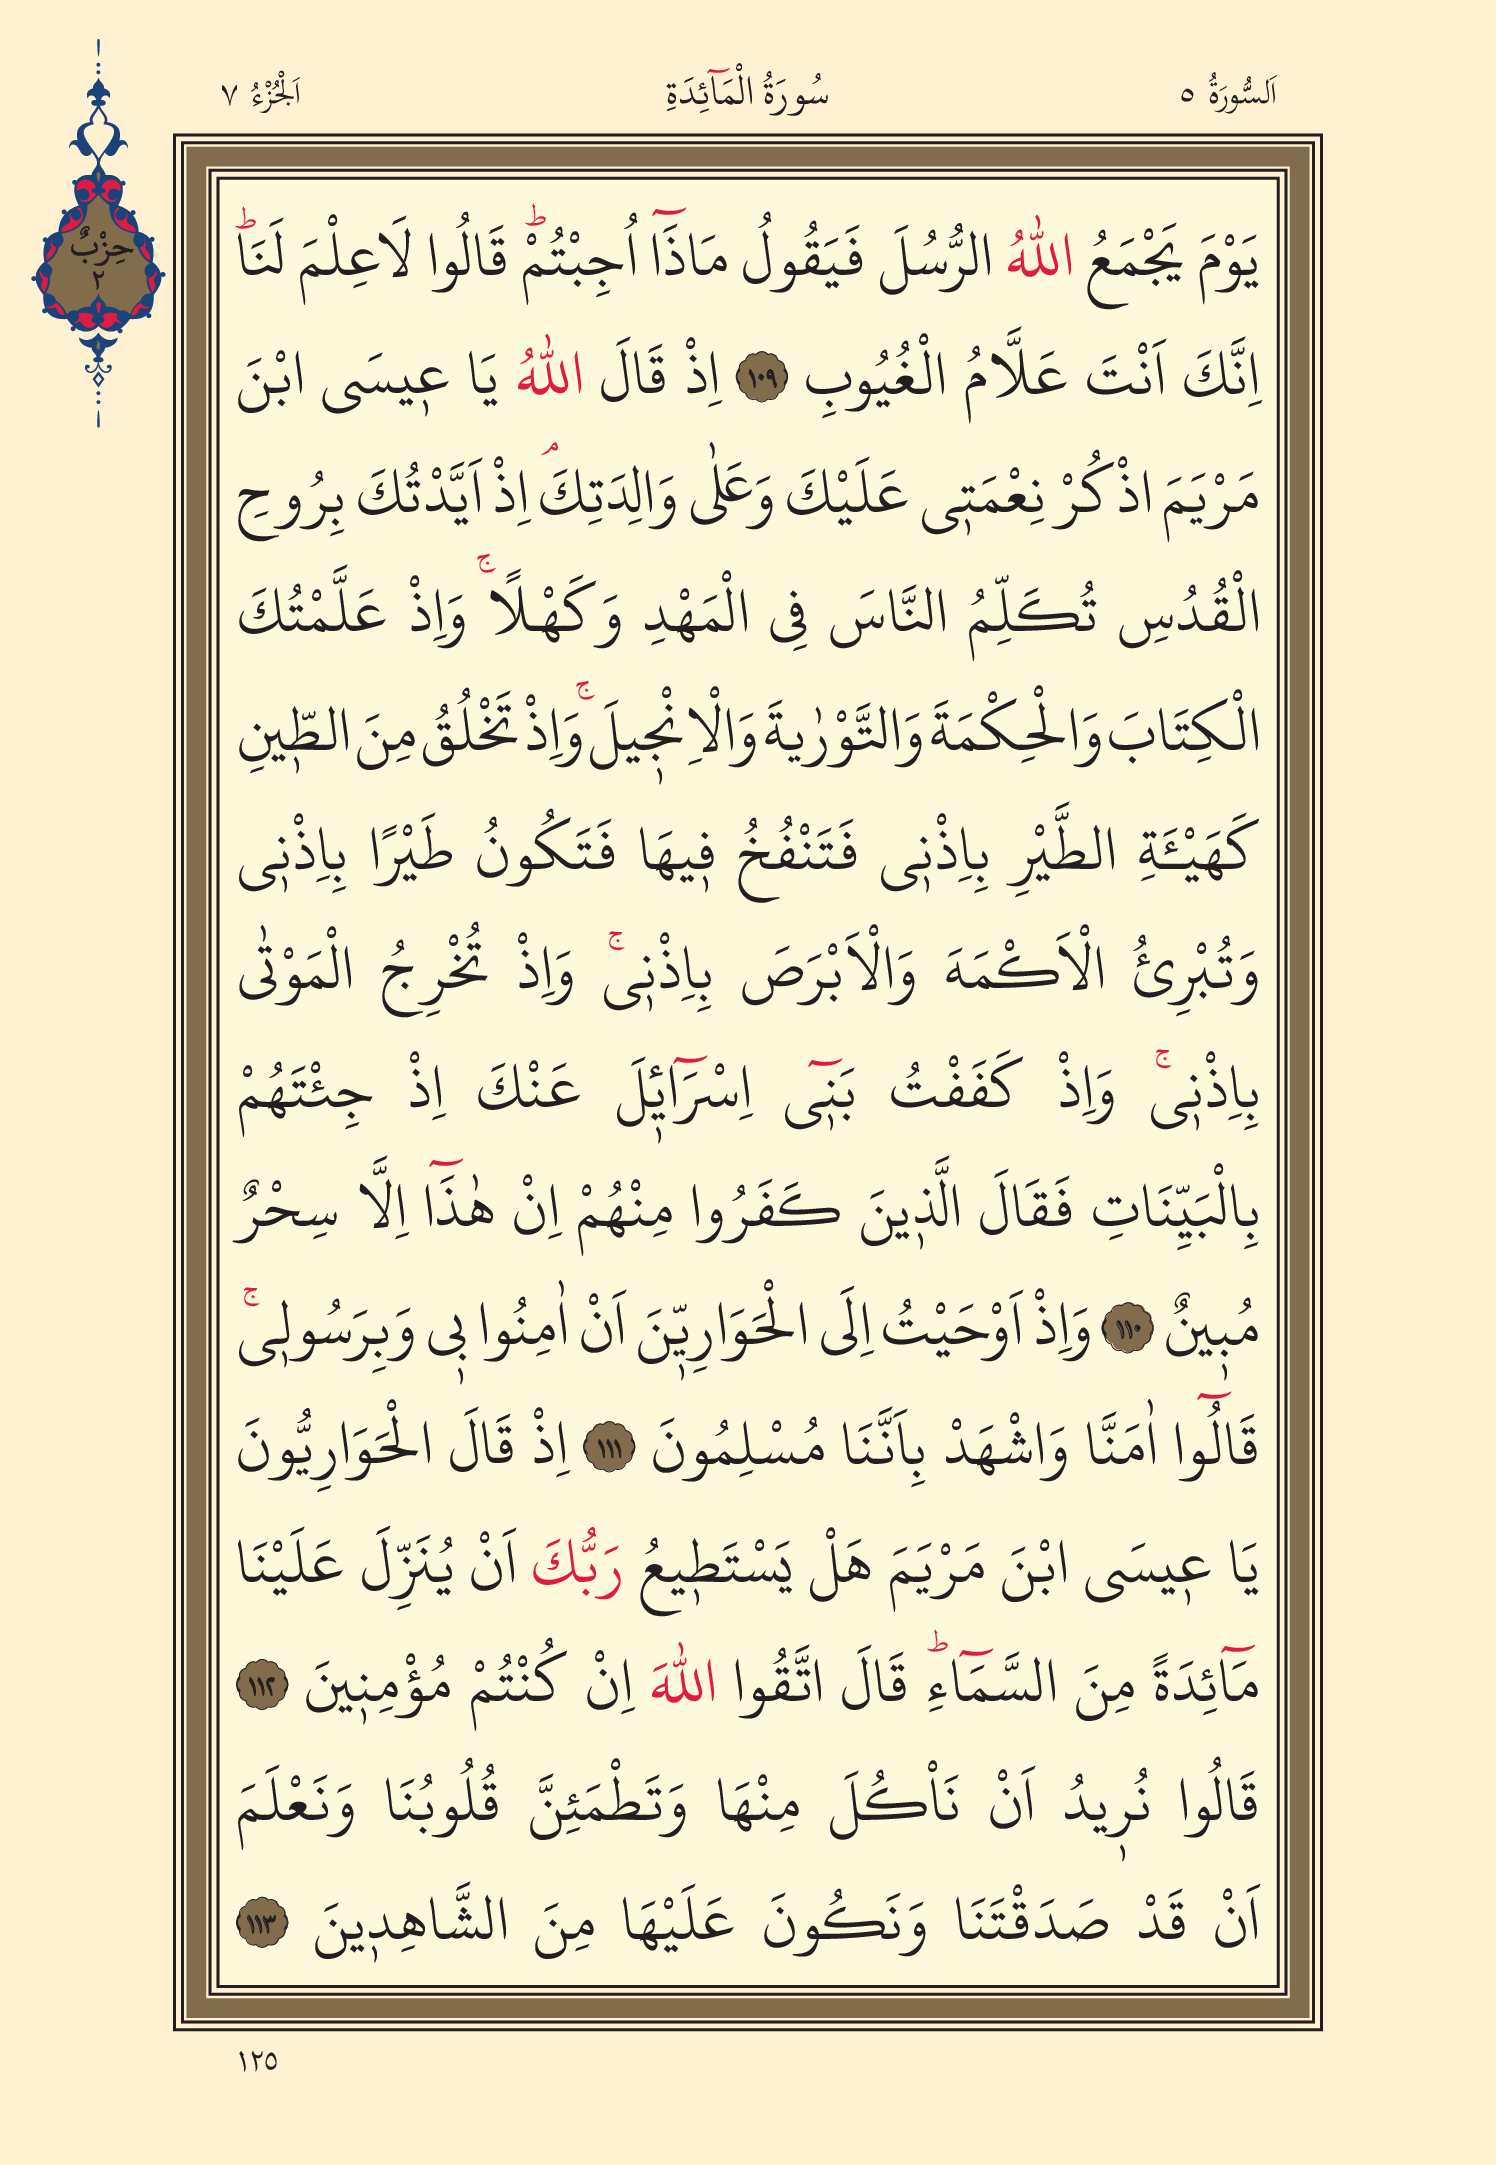 اَلسُّورَةُ ٥
سُورَةُ الْمَٓائِدَةِ
اَلْجُزْءُ ٧
حِزْبٌ
٢
يَوْمَ يَجْمَعُ اللّٰهُ الرُّسُلَ فَيَقُولُ مَاذَٓا اُجِبْتُمْؕ قَالُوا لَا عِلْمَ لَنَاؕ
اِنَّكَ اَنْتَ عَلَّامُ الْغُيُوبِ ١٠٩ اِذْ قَالَ اللّٰهُ يَا ع۪يسَى ابْنَ
مَرْيَمَ اذْكُرْ نِعْمَت۪ي عَلَيْكَ وَعَلٰى وَالِدَتِكَۢ اِذْ اَيَّدْتُكَ بِرُوحِ
الْقُدُسِ تُكَلِّمُ النَّاسَ فِي الْمَهْدِ وَكَهْلًاۚ وَاِذْ عَلَّمْتُكَ
الْكِتَابَ وَالْحِكْمَةَ وَالتَّوْرٰيةَ وَالْاِنْج۪يلَۚ وَاِذْ تَخْلُقُ مِنَ الطّ۪ينِ
كَهَيْـَٔةِ الطَّيْرِ بِاِذْن۪ي فَتَنْفُخُ ف۪يهَا فَتَكُونُ طَيْرًا بِاِذْن۪ي
وَتُبْرِئُ الْاَكْمَهَ وَالْاَبْرَصَ بِاِذْن۪يۚ وَاِذْ تُخْرِجُ الْمَوْتٰى
بِاِذْن۪يۚ وَاِذْ كَفَفْتُ بَن۪ٓي اِسْرَٓائ۪لَ عَنْكَ اِذْ جِئْتَهُمْ
بِالْبَيِّنَاتِ فَقَالَ الَّذ۪ينَ كَفَرُوا مِنْهُمْ اِنْ هٰذَٓا اِلَّا سِحْرٌ
مُب۪ينٌ ١١٠ وَاِذْ اَوْحَيْتُ اِلَى الْحَوَارِيّ۪نَ اَنْ اٰمِنُوا ب۪ي وَبِرَسُول۪يۚ
قَالُٓوا اٰمَنَّا وَاشْهَدْ بِاَنَّنَا مُسْلِمُونَ ١١١ اِذْ قَالَ الْحَوَارِيُّونَ
يَا ع۪يسَى ابْنَ مَرْيَمَ هَلْ يَسْتَط۪يعُ رَبُّكَ اَنْ يُنَزِّلَ عَلَيْنَا
مَٓائِدَةً مِنَ السَّمَٓاءِؕ قَالَ اتَّقُوا اللّٰهَ اِنْ كُنْتُمْ مُؤْمِن۪ينَ ١١٢
قَالُوا نُر۪يدُ اَنْ نَأْكُلَ مِنْهَا وَتَطْمَئِنَّ قُلُوبُنَا وَنَعْلَمَ
اَنْ قَدْ صَدَقْتَنَا وَنَكُونَ عَلَيْهَا مِنَ الشَّاهِد۪ينَ ١١٣
١٢٥